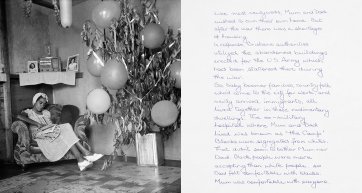 Like most newlyweds, Mum and Dad
wished to own their own home. But
after the war there was a shortage
of housing.
Brisbane authorities
utilised the abandoned buildings
erected for the U.S. Army which
had been stationed there during
the war.
So baby boomer families, country folk
who came to the city for work and
newly arrived immigrants, all
lived together in these rudimentary
dwellings. The ex-military
hospitals where Mum and Dad
lived was known as "The Camp".
Blacks were segregated from whites.
That didn't seem to bother Mum nor
Dad. Black people were more
accepting than white people, so
Dad felt comfortable with blacks.
Mum was comfortable with everyone.